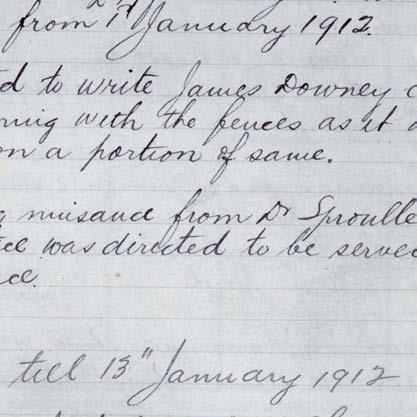 from 1st January 1912.
d to write James Downey
ning with the fences as it
on a portion of same.
nuisance from Dr Sproulle
was directed to be served
till 13th January 1912